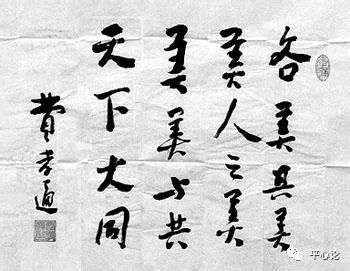 各美其美
美人之美
美美与共
天下大同
費孝通
平心论